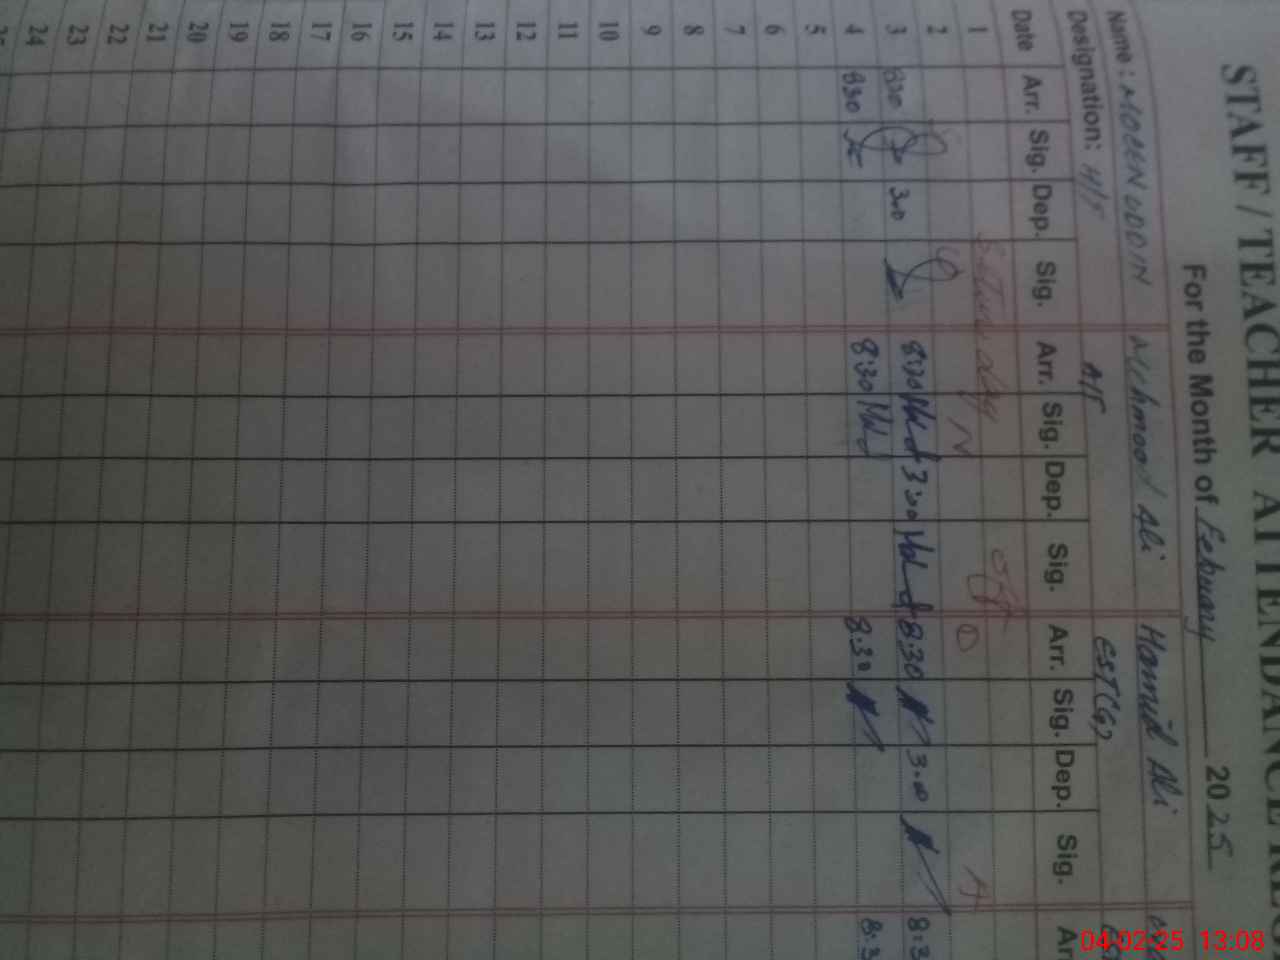 STAFF / TEACHER ATTENDANCE REG
For the Month of Febuary 2025
Name: MOEEN UDDIN Mehmood Ali Hamid Ali
Designation: H/T A/T EST(G)
Date Arr. Sig. Dep. Sig. Arr. Sig. Dep. Sig. Arr. Sig. Dep. Sig. Ar
1 Saturday off
2
3 830 3.0 8:30 3:00 8:30 3.00 8:3
4 830 8:30 8:30 8:3
5
6
7
8
9
10
11
12
13
14
15
16
17
18
19
20
21
22
23
24
04-02-25 13:08